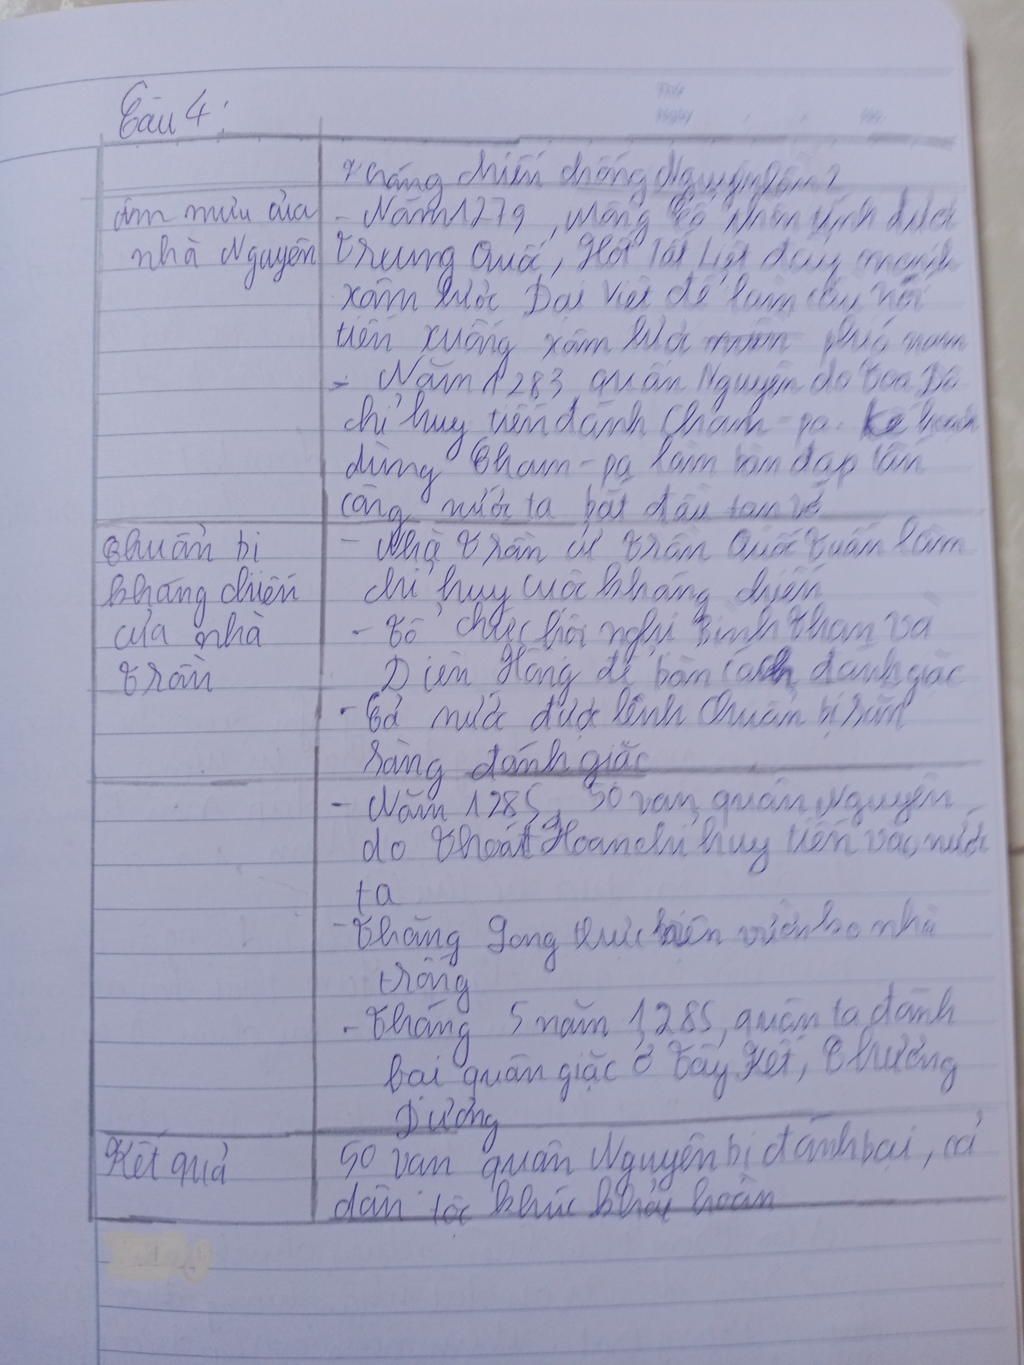 Câu 4:
Kháng chiến chống Nguyên lần 2
Âm mưu của
nhà Nguyên
- Năm 1279, Mông Cổ thôn tính được
Trung Quốc, Hốt Tất Liệt đẩy mạnh
xâm lược Đại Việt để làm cầu nối
tiến xuống xâm lược phía nam
- Năm 1283 quân Nguyên do Toa Đô
chỉ huy tiến đánh Cham-pa. Kế hoạch
dùng Cham-pa làm bàn đạp tấn
công nước ta bắt đầu tan vỡ
Chuẩn bị
kháng chiến
của nhà
Trần
- Nhà Trần cử Trần Quốc Tuấn làm
chỉ huy cuộc kháng chiến
- Tổ chức hội nghị Bình Than và
Diên Hồng để bàn cách đánh giặc
- Cả nước được lệnh chuẩn bị sẵn
sàng đánh giặc
- Năm 1285, 50 vạn quân Nguyên
do Thoát Hoan chỉ huy tiến vào nước
ta
- Thăng Long thực hiện vườn ko nhà
trống
- Tháng 5 năm 1285, quân ta đánh
bại quân giặc ở Tây Kết, Chương
Dương
Kết quả
50 vạn quân Nguyên bị đánh bại, cả
dân tộc khúc khải hoàn